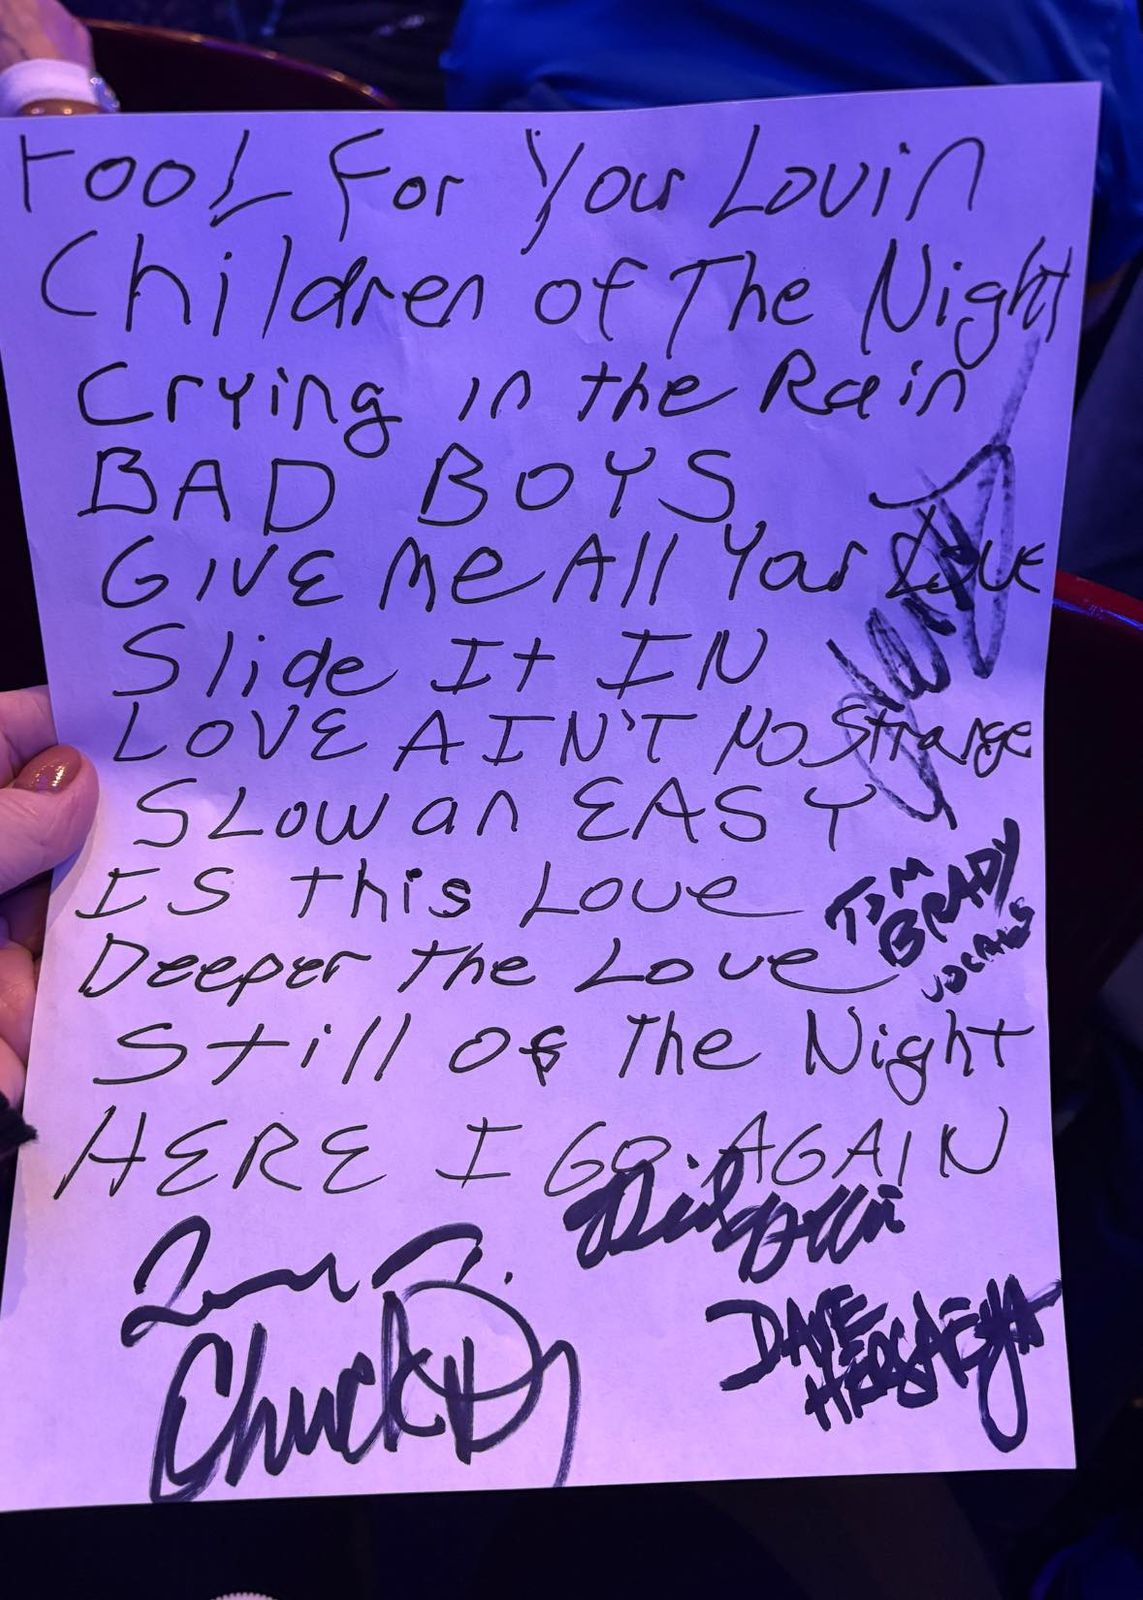 FooL For Your Lovin
Children of The Night
Crying in the Rain
BAD BOYS
GIVE Me All Your Love
Slide It IN
LOVE AIN'T NO Strange
SLOW an EASY
IS this Love
Deeper the Love
Still of The Night
HERE I GO AGAIN
TIM
BRADY
VOCALS
Chuck
DAVE